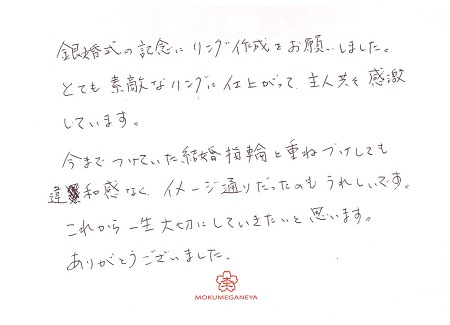 銀婚式の記念にリング作成をお願いしました。
とても素敵なリングに仕上がって、主人共々感激
しています。
今までつけていた結婚指輪と重ねづけしても
違和感なく、イメージ通りだったのもうれしいです。
これから一生大切にしていきたいと思います。
ありがとうございました。
MOKUMEGANEYA